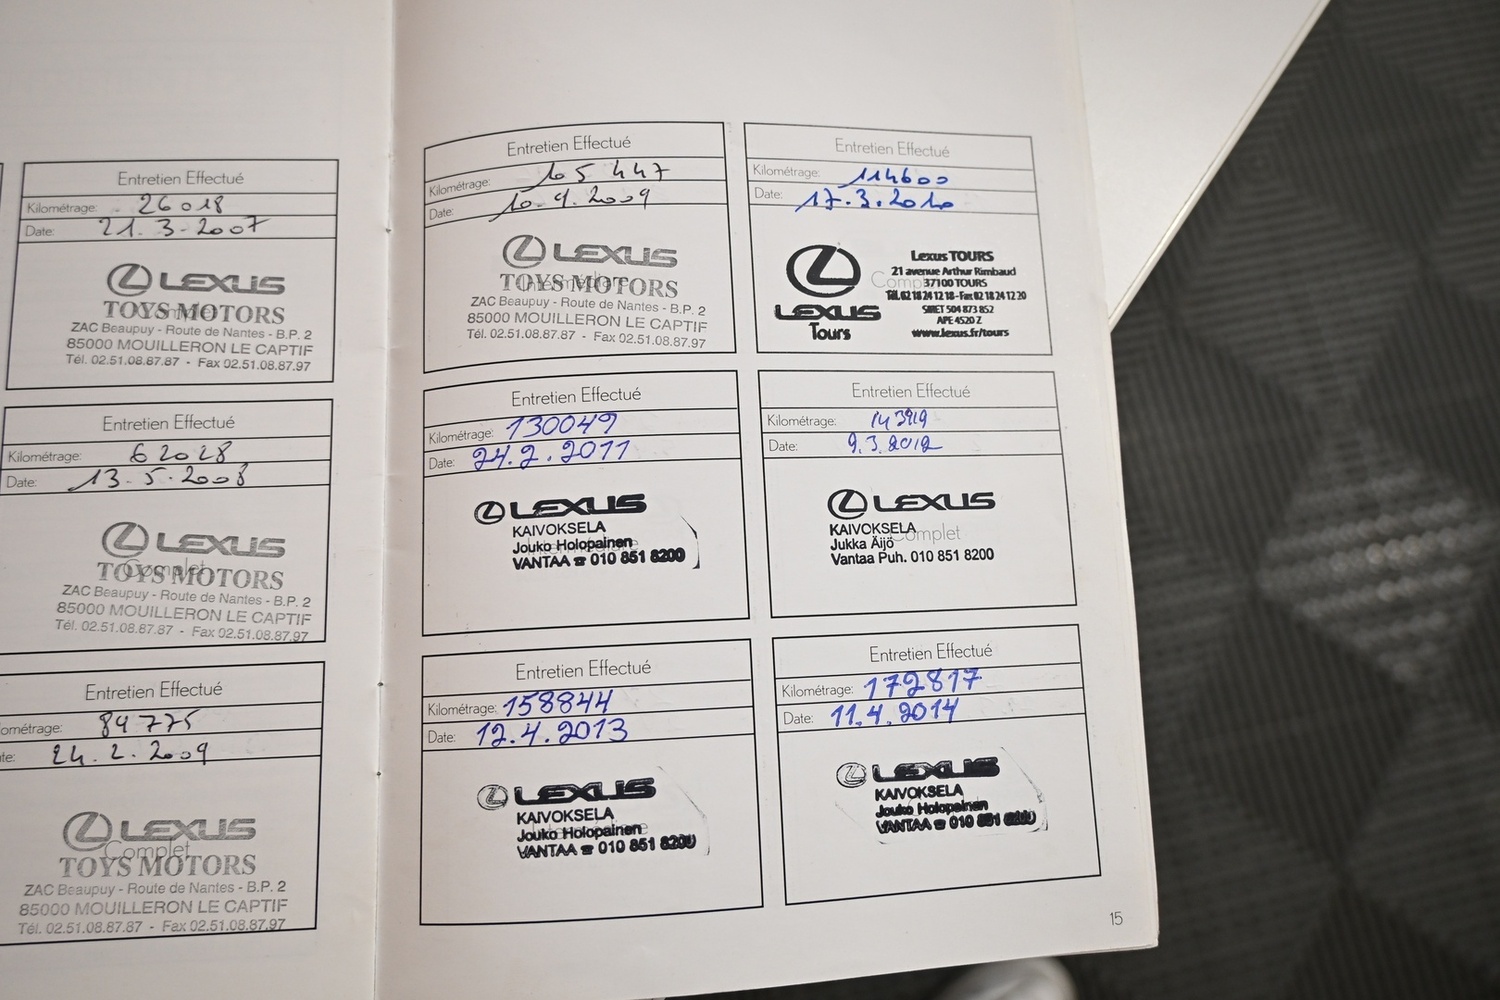 Entretien Effectué
Kilométrage: 26018
Date: 21.3-2007
LEXUS
TOYS MOTORS
ZAC Beaupuy - Route de Nantes - B.P. 2
85000 MOUILLERON LE CAPTIF
Tél. 02.51.08.87.87 - Fax 02.51.08.87.97
Entretien Effectué
Kilométrage: 62028
Date: 13.5.2008
LEXUS
Complet
TOYS MOTORS
ZAC Beaupuy - Route de Nantes - B.P. 2
85000 MOUILLERON LE CAPTIF
Tél. 02.51.08.87.87 - Fax 02.51.08.87.97
Entretien Effectué
ométrage: 84775
te: 24.2.2009
LEXUS
Complet
TOYS MOTORS
ZAC Beaupuy - Route de Nantes - B.P. 2
85000 MOUILLERON LE CAPTIF
Tél. 02.51.08.87.87 - Fax 02.51.08.87.97
Entretien Effectué
Kilométrage: 105 447
Date: 10.9.2009
LEXUS
TOYS MOTORS
ZAC Beaupuy - Route de Nantes - B.P. 2
85000 MOUILLERON LE CAPTIF
Tél. 02.51.08.87.87 - Fax 02.51.08.87.97
Entretien Effectué
Kilométrage: 114600
Date: 17.3.2010
LEXUS
Tours
Lexus TOURS
21 avenue Arthur Rimbaud
37100 TOURS
Tél. 02 18 24 12 18 - Fax 02 18 24 12 20
SIRET 504 873 852
APE 4520 Z
www.lexus.fr/tours
Entretien Effectué
Kilométrage: 130049
Date: 24.2.2011
LEXUS
KAIVOKSELA
Jouko Holopainen
VANTAA ☎ 010 851 8200
Entretien Effectué
Kilométrage: 143919
Date: 9.3.2012
LEXUS
KAIVOKSELA
Complet
Jukka Äijö
Vantaa Puh. 010 851 8200
Entretien Effectué
Kilométrage: 158844
Date: 12.4.2013
LEXUS
KAIVOKSELA
Jouko Holopainen
VANTAA ☎ 010 851 8200
Entretien Effectué
Kilométrage: 172817
Date: 11.4.2014
LEXUS
KAIVOKSELA
Jouko Holopainen
VANTAA ☎ 010 851
15